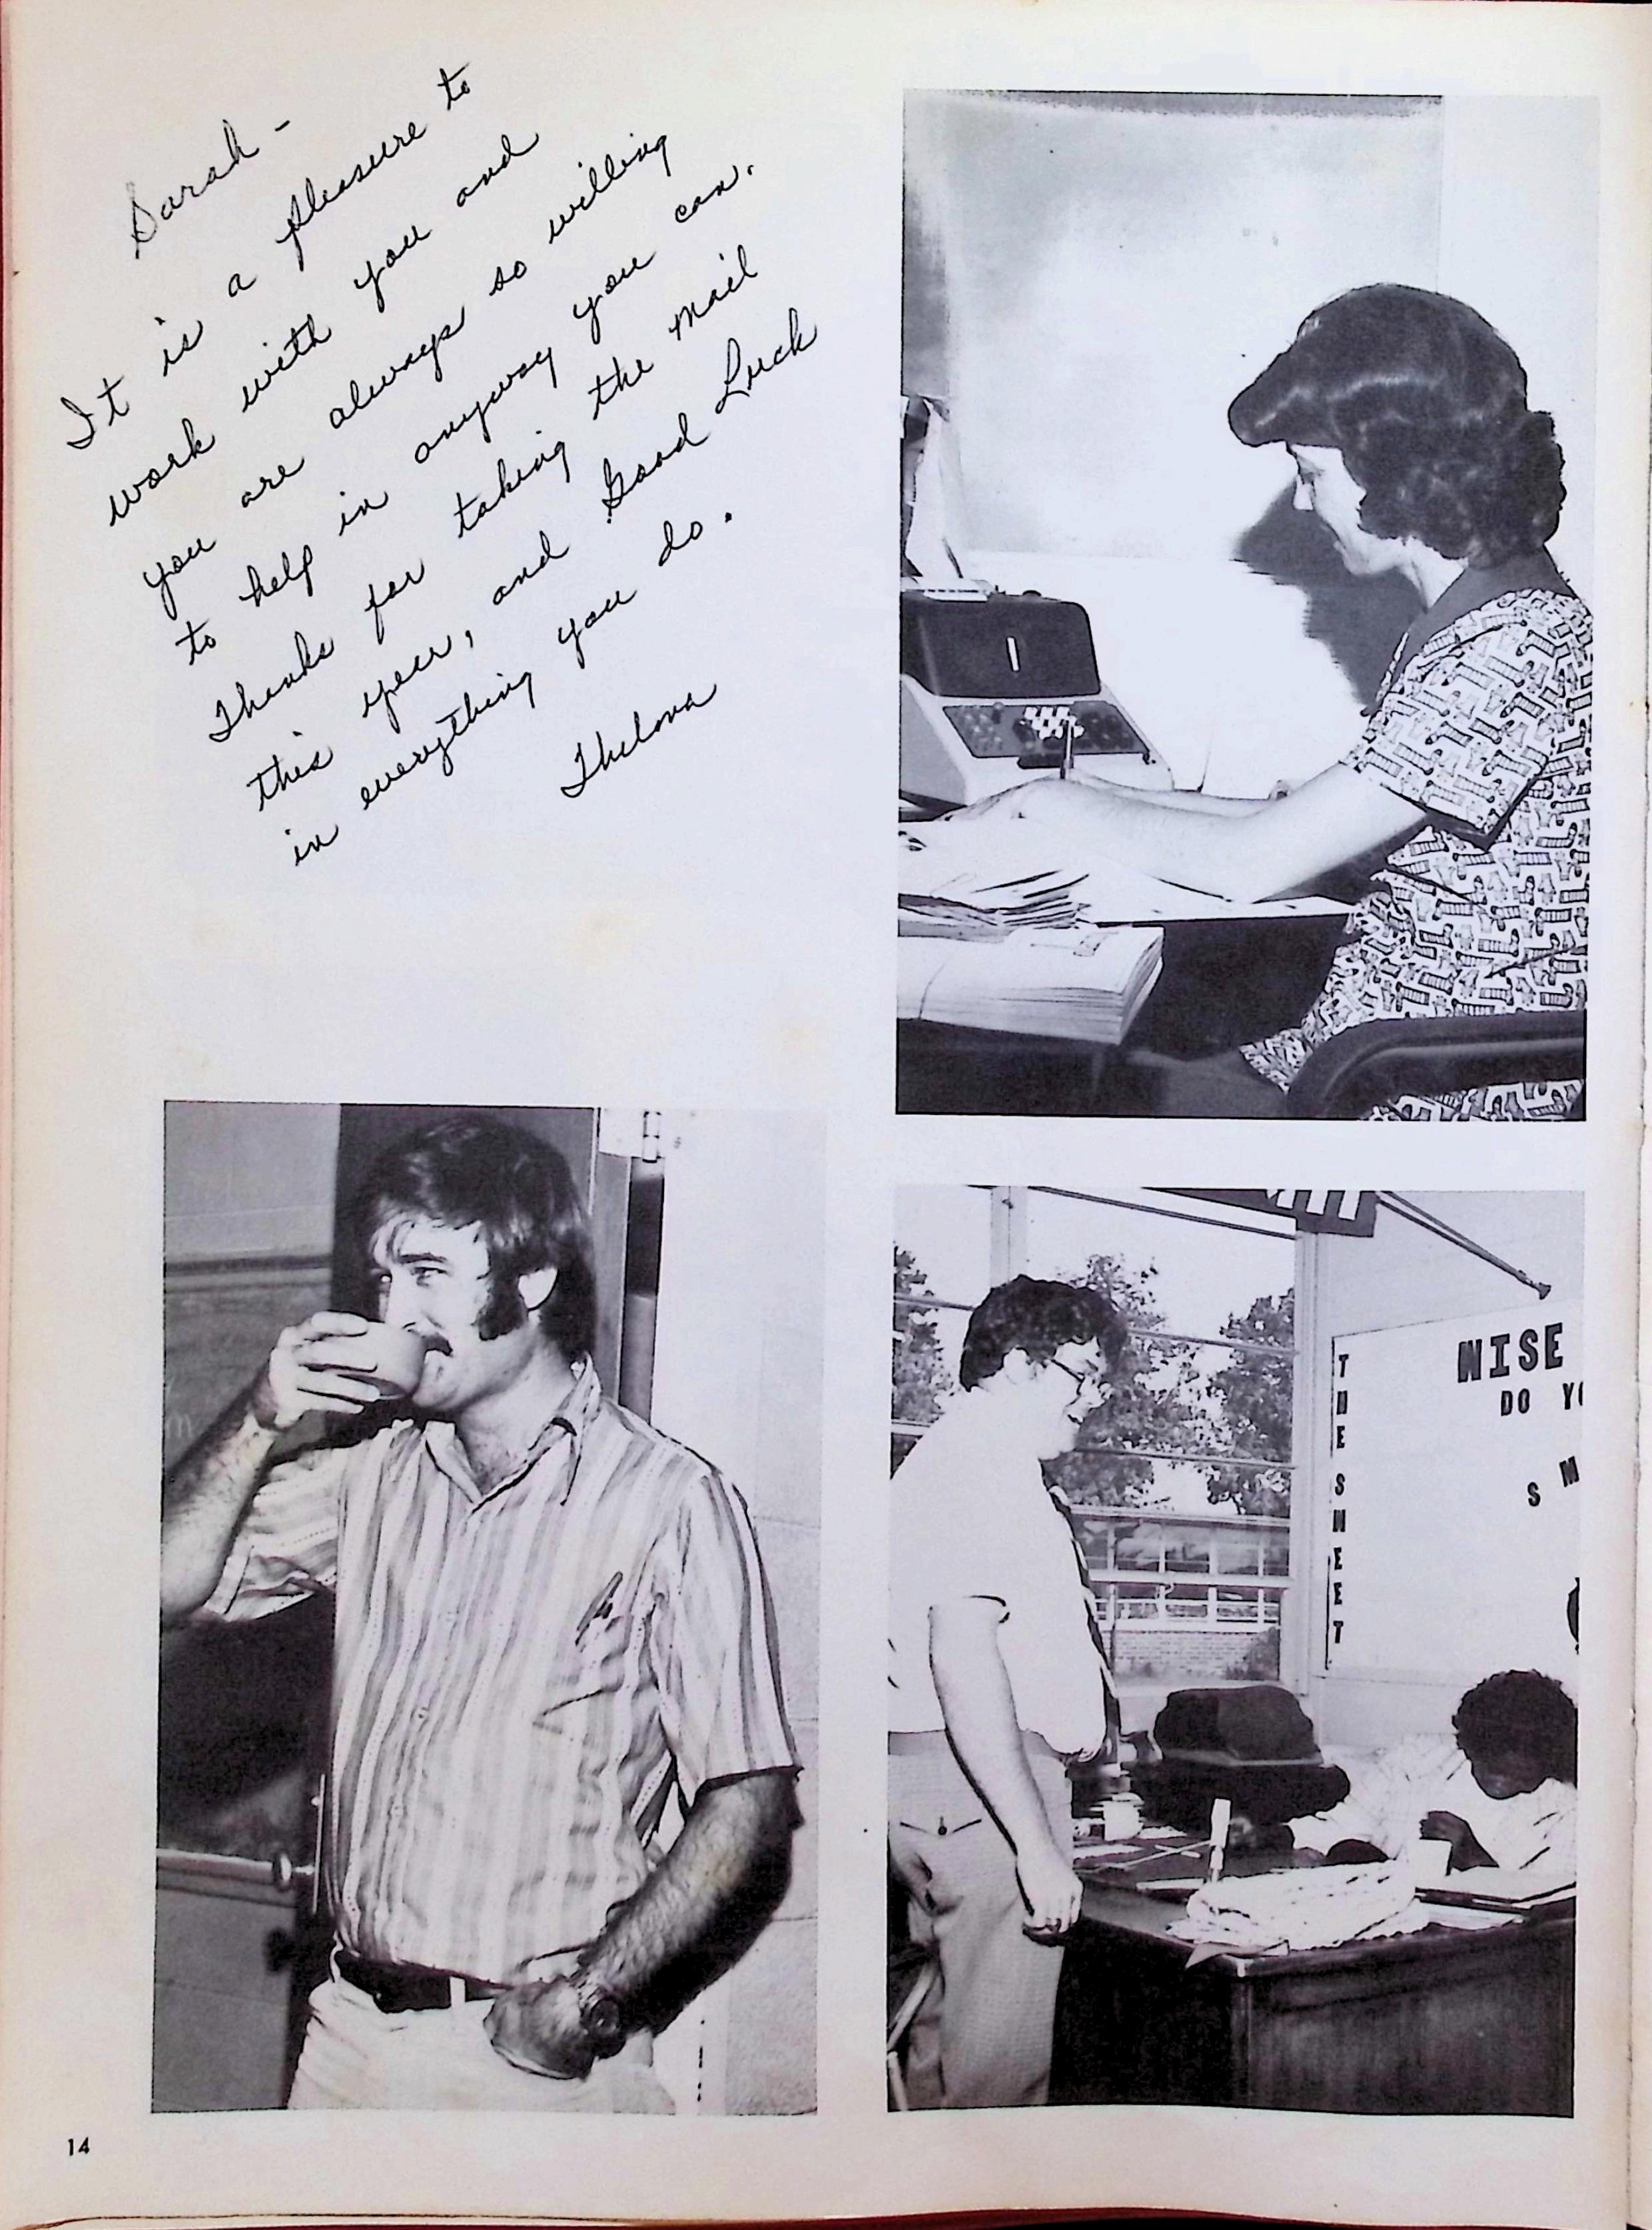 Sarah -
It is a pleasure to
work with you and
you are always so willing
to help in anyway you can.
Thanks for taking the mail
this year, and Good Luck
in everything you do.
Thelma
WISE
DO YO
S M
THE SHEET
14